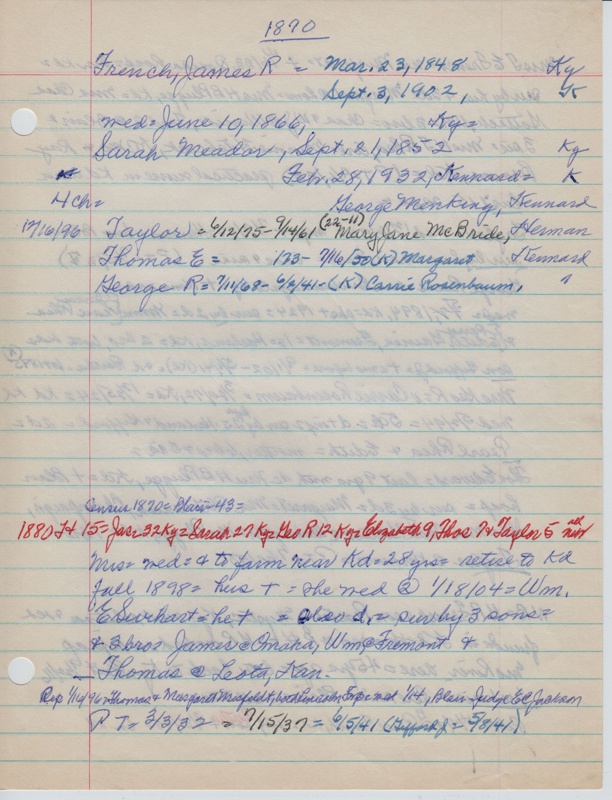 1870
French, James R = Mar. 23, 1848 Ky
Sept. 3, 1902, K
med = June 10, 1866, Ky =
Sarah Meador, Sept. 21, 1852 Ky
Feb. 28, 1932, Kennard = K
4 ch = George Menking, Kennard
12/16/96 Taylor = 6/12/75 - 9/14/61 (22-11) Mary Jane McBride, Herman
Thomas E = 173 - 7/16/55 (K) Margaret Kennard
George R = 7/11/68 - 6/9/41 - (K) Carrie Rosenbaum, "
Census 1870 = Blair 43 =
1880 Ft 15 = Jas 32 Ky = Sarah 27 Ky = Geo R 12 Ky = Elizabeth 9, Thos 7 & Taylor 5 all
Mrs = med = & to farm near Kd = 28 yrs = retire to Kd
fall 1898 = hus + = she med @ 1/18/04 = Wm.
E Swihart = he + = also d. = surv by 3 sons =
& 3 bro James @ Omaha, Wm @ Fremont &
Thomas @ Leota, Kan.
Rep 1/16/96 = Thomas & Margaret both med 1/14, Blair Judge E C Jackson
P T = 3/3/32 = 7/15/37 = 6/5/41 (Gifford J = 5/8/41)